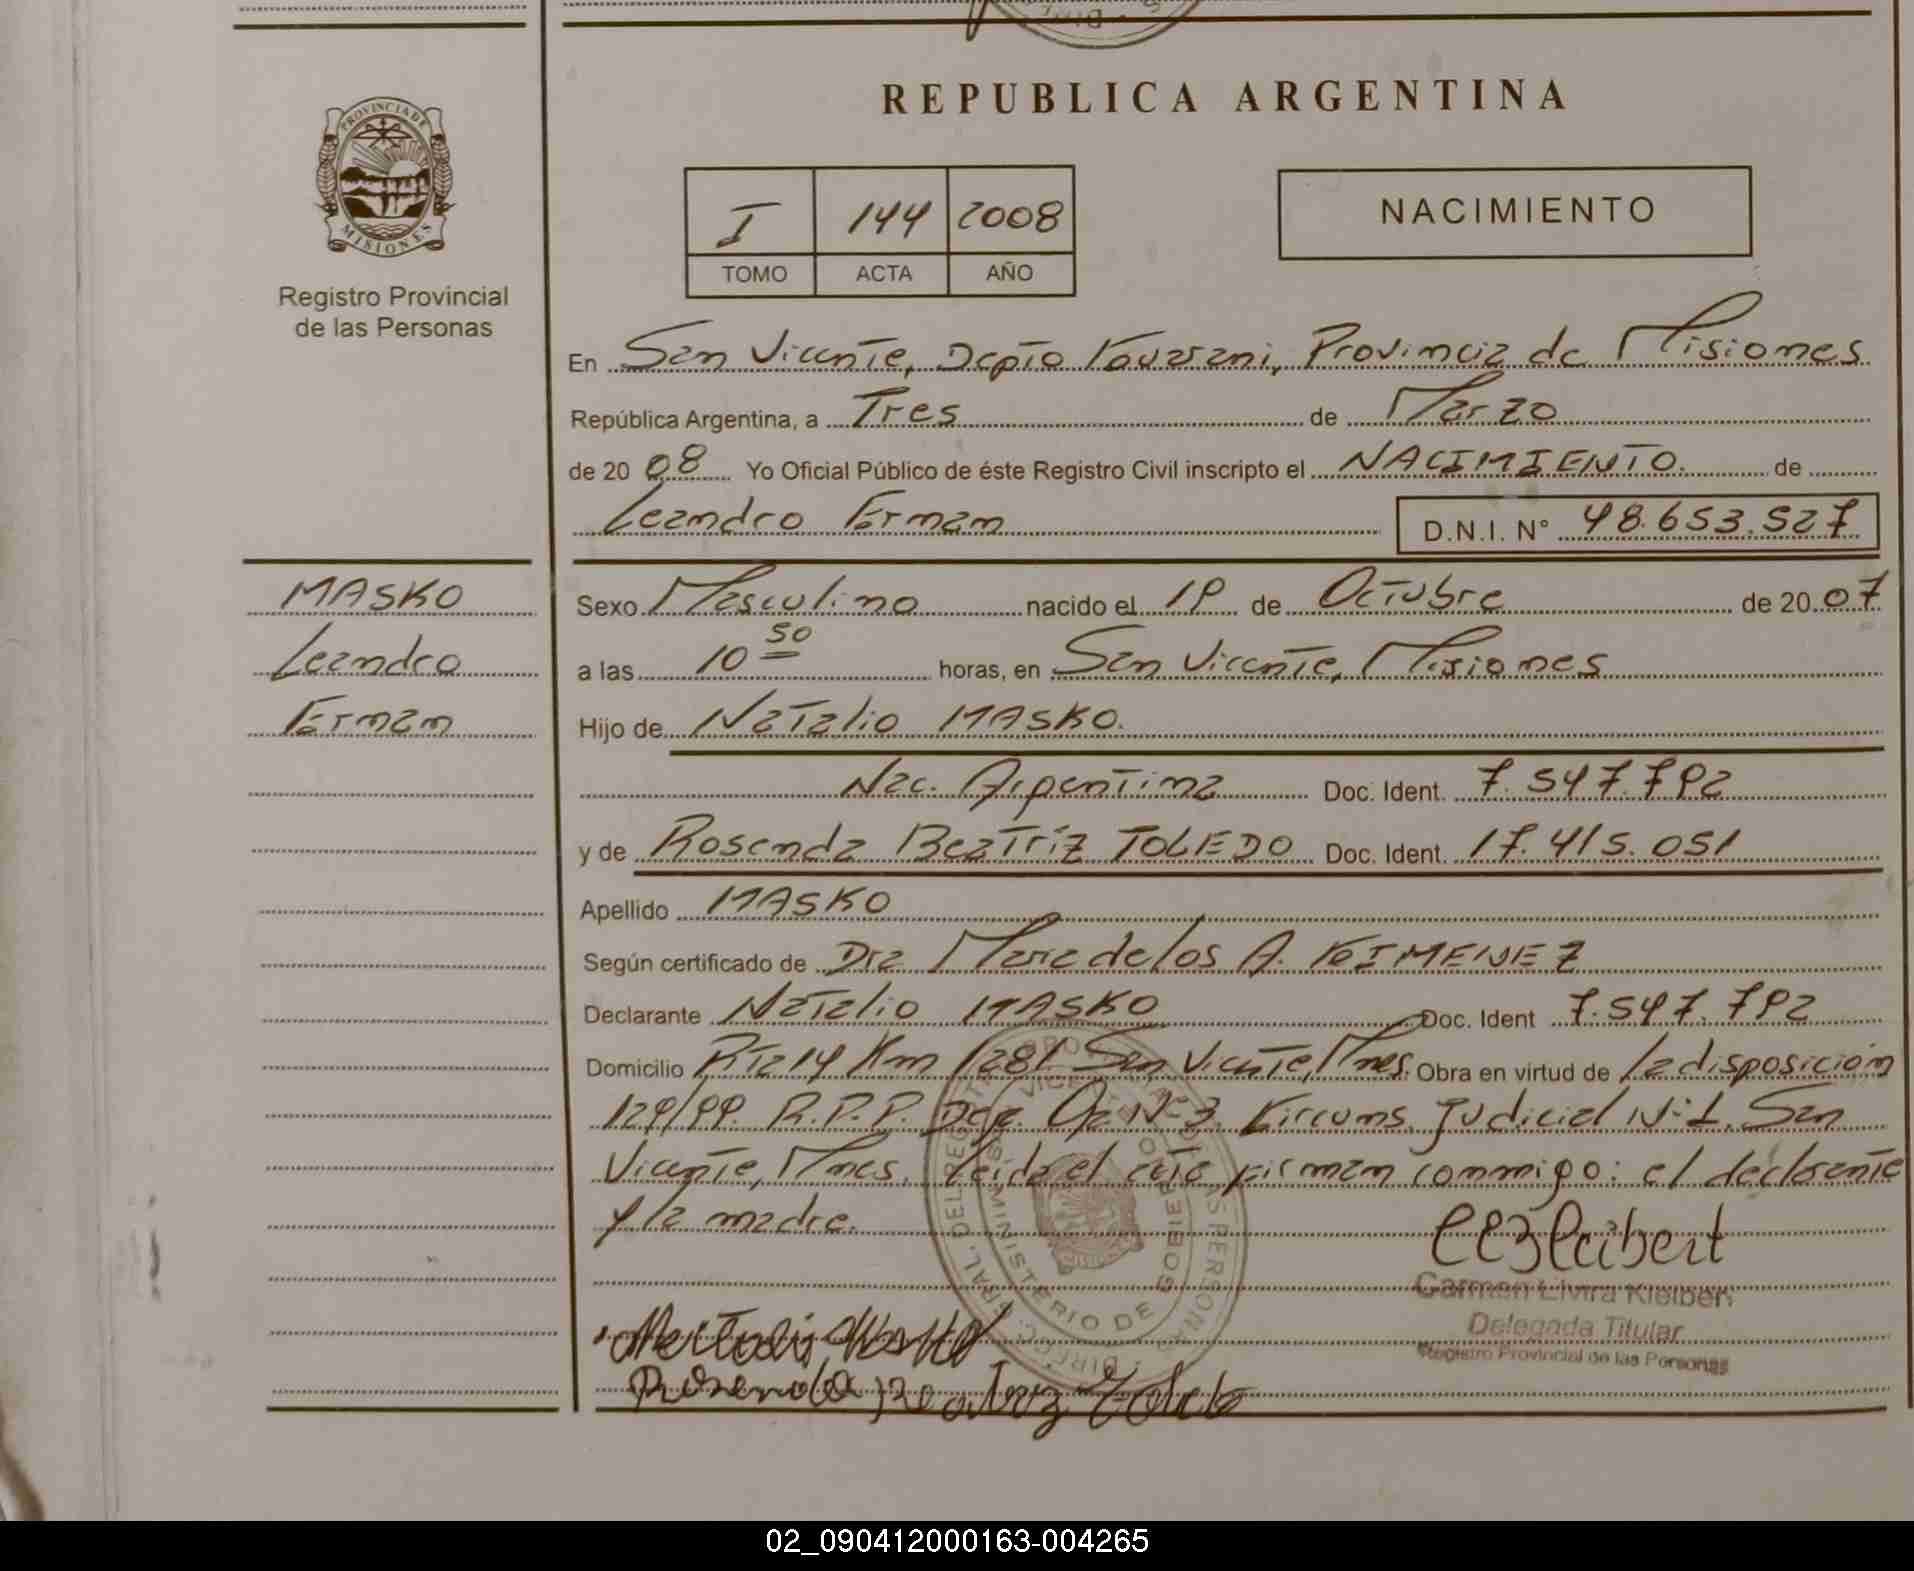 REPUBLICA ARGENTINA
PROVINCIA DE
MISIONES
Registro Provincial
de las Personas
I 144 2008
TOMO ACTA AÑO
NACIMIENTO
En San Vicente, Depto Guarani, Provincia de Misiones
República Argentina, a Tres de Marzo
de 20 08 Yo Oficial Público de éste Registro Civil inscripto el NACIMIENTO. de
Leandro German D.N.I. N° 48.653.527
MASKO
Leandro
German
Sexo Masculino nacido el 19 de Octubre de 20 07
a las 10 50 horas, en San Vicente, Misiones
Hijo de Natalio MASKO.
Nac. Argentina Doc. Ident. 7.547.792
y de Rosenda Beatriz TOLEDO Doc. Ident. 17.415.051
Apellido MASKO
Según certificado de Dra Maria de los A. GIMENEZ
Declarante Natalio MASKO Doc. Ident 7.547.792
Domicilio Rta 14 Km 1281 San Vicente, Mnes. Obra en virtud de la disposición
129/99. R.P.P. N° 3. Circuns. Judicial N° 1. San
Vicente, Mnes. Leida el acta firman conmigo: el declarante
y la madre.
Carmen Elvira Kleibert
Delegada Titular
Registro Provincial de las Personas
MINISTERIO DE GOBIERNO
Rosenda Beatriz Toledo
02_090412000163-004265